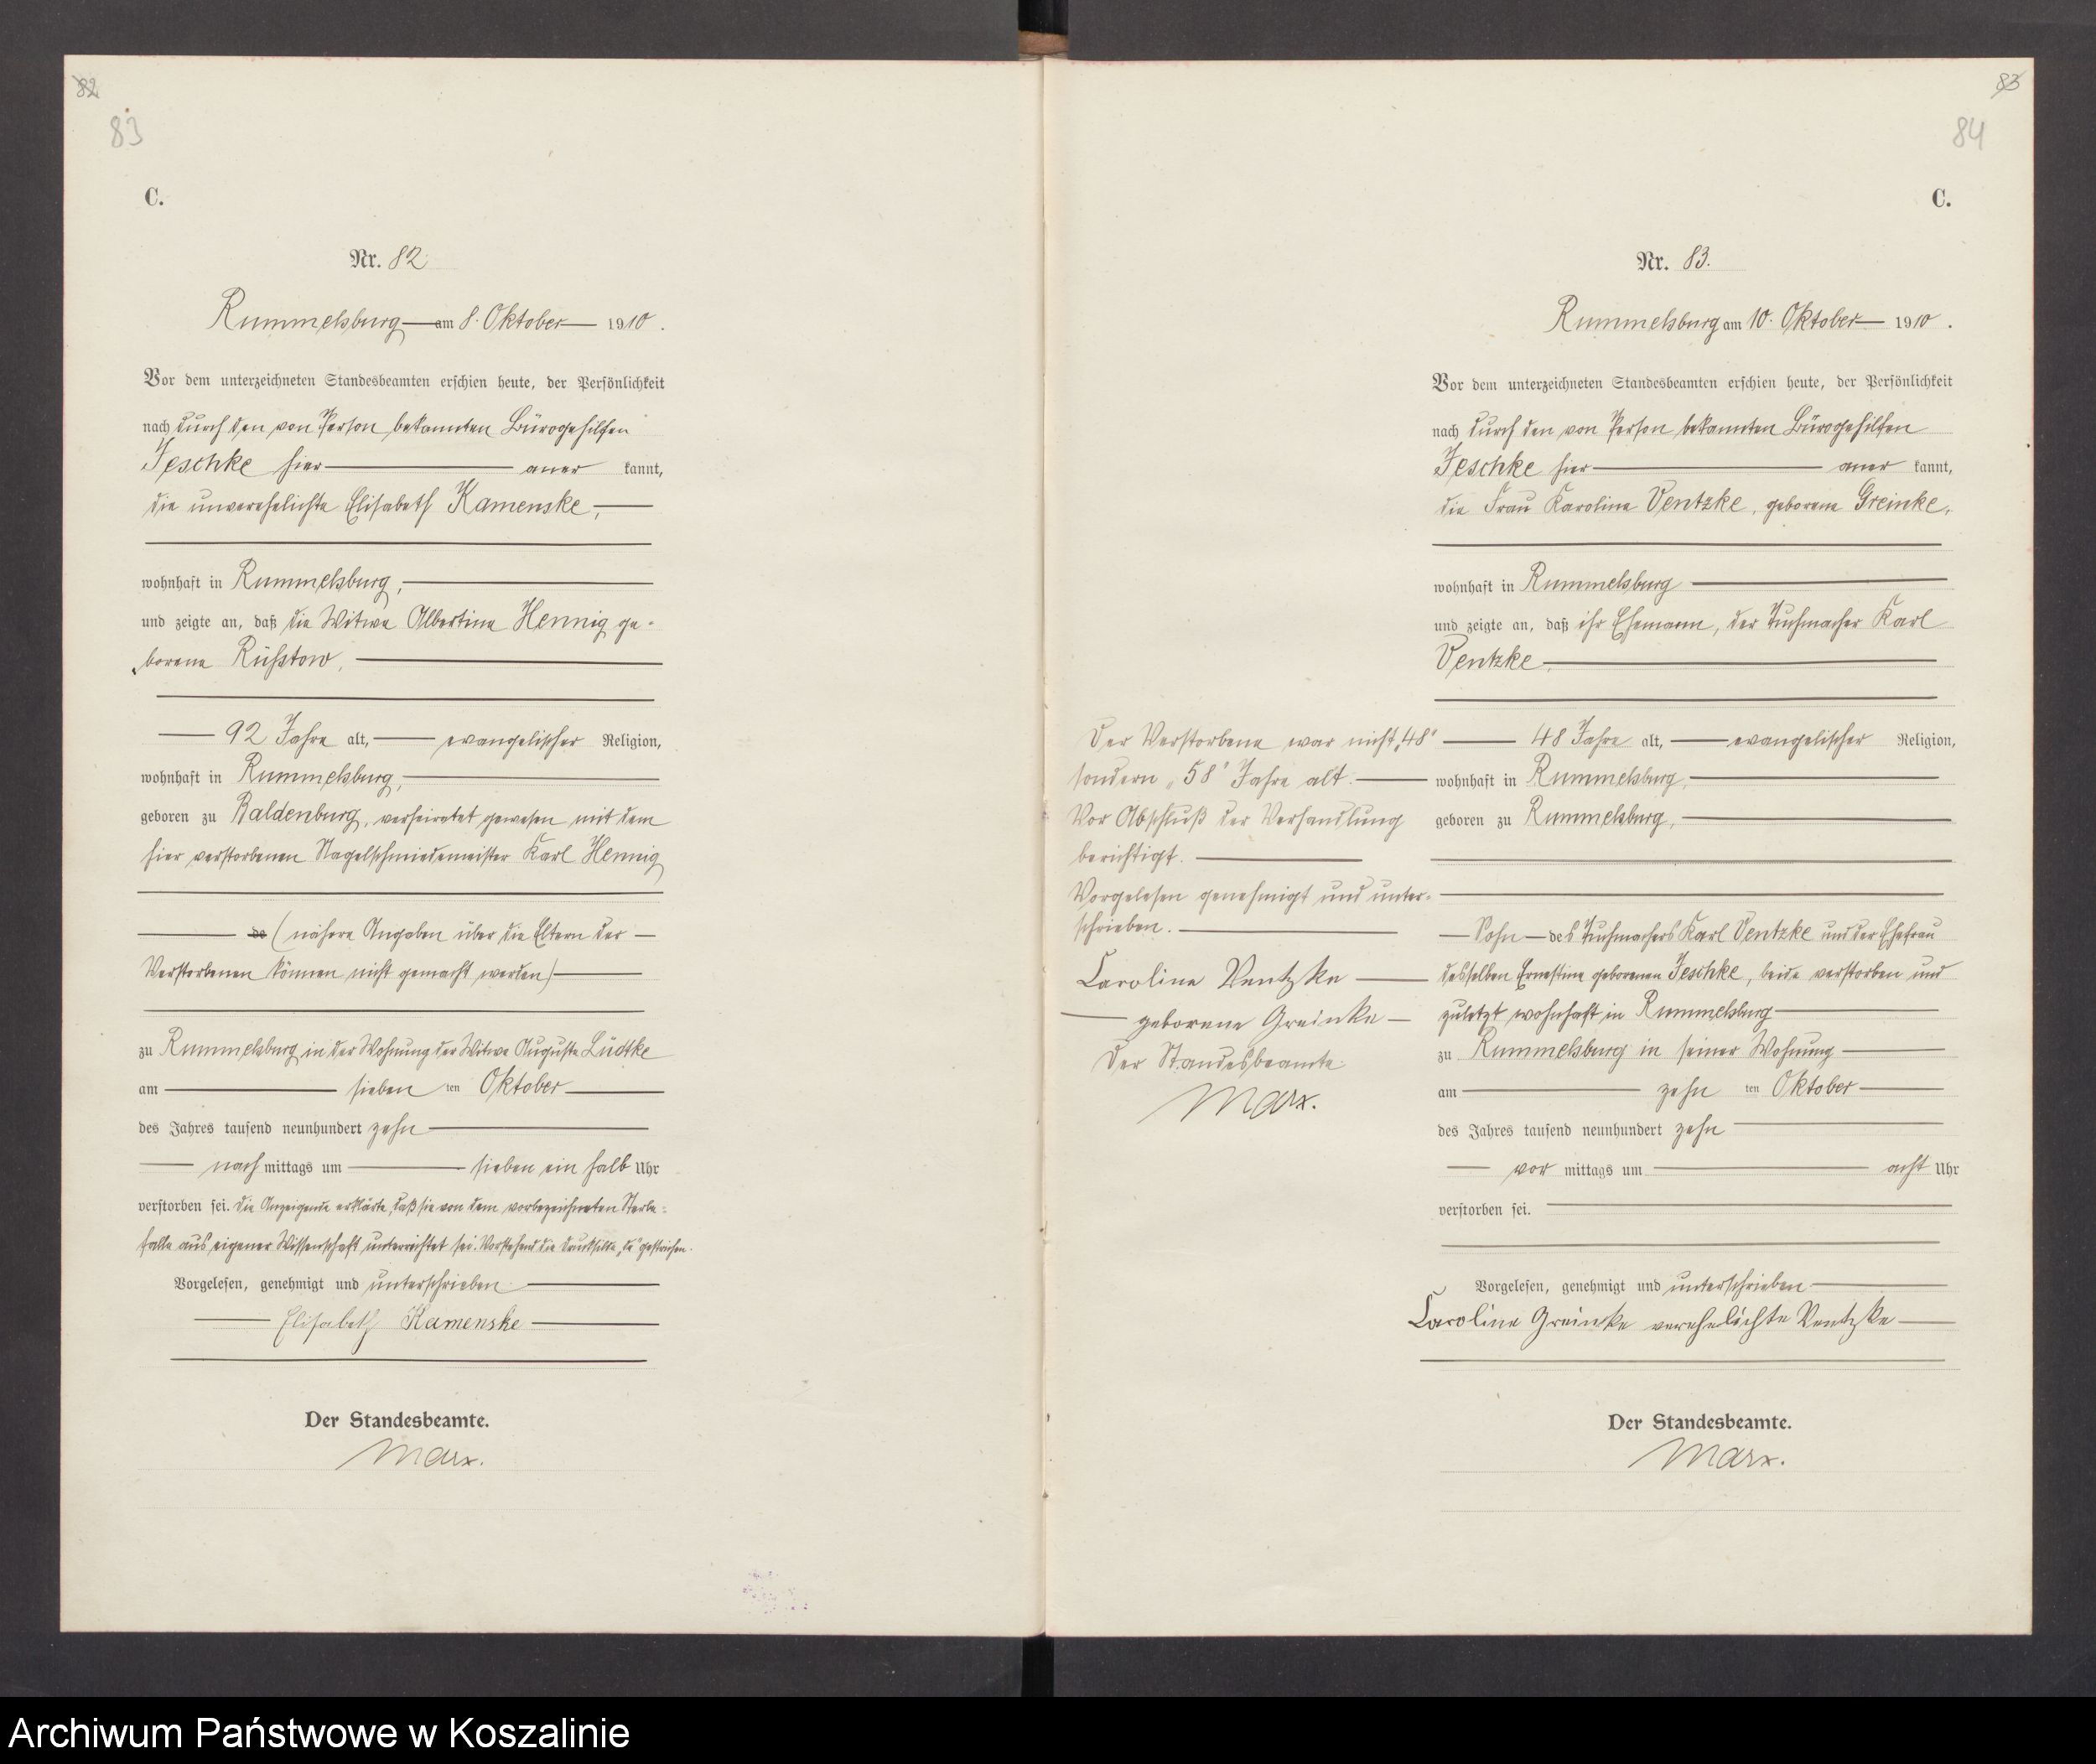 82
83
C.
Nr. 82
Rummelsburg am 8. Oktober 1910.
Vor dem unterzeichneten Standesbeamten erschien heute, der Persönlichkeit
nach durch den von Person bekannten Bürogehilfen
Jeschke hier aner kannt,
die unverehelichte Elisabeth Kamenske,
wohnhaft in Rummelsburg,
und zeigte an, daß die Witwe Albertine Hennig ge-
borene Rüßtow,
92 Jahre alt, evangelischer Religion,
wohnhaft in Rummelsburg,
geboren zu Baldenburg, verheiratet gewesen mit dem
hier verstorbenen Nagelschmiedemeister Karl Hennig
de (nähere Angaben über die Eltern der
Verstorbenen können nicht gemacht werden)
zu Rummelsburg in der Wohnung der Witwe Auguste Lüdtke
am sieben ten Oktober
des Jahres tausend neunhundert zehn
nach mittags um sieben ein halb Uhr
verstorben sei. Die Anzeigende erklärte, daß sie von dem vorbezeichneten Sterbe-
falle aus eigener Wissenschaft unterrichtet sei. Vorstehend die Drucksilbe „de" gestrichen.
Vorgelesen, genehmigt und unterschrieben
Elisabeth Kamenske
Der Standesbeamte.
Marx.
83
84
C.
Nr. 83.
Rummelsburg am 10. Oktober 1910.
Vor dem unterzeichneten Standesbeamten erschien heute, der Persönlichkeit
nach durch den von Person bekannten Bürogehilfen
Jeschke hier aner kannt,
die Frau Karoline Ventzke, geborene Greinke,
wohnhaft in Rummelsburg
und zeigte an, daß ihr Ehemann, der Tuchmacher Karl
Ventzke,
48 Jahre alt, evangelischer Religion,
wohnhaft in Rummelsburg,
geboren zu Rummelsburg,
Sohn des Tuchmachers Karl Ventzke und der Ehefrau
desselben Ernestine geborenen Jeschke, beide verstorben und
zuletzt wohnhaft in Rummelsburg
zu Rummelsburg in seiner Wohnung
am zehn ten Oktober
des Jahres tausend neunhundert zehn
vor mittags um acht Uhr
verstorben sei.
Vorgelesen, genehmigt und unterschrieben
Caroline Greinke verehelichte Ventzke
Der Standesbeamte.
Marx.
Der Verstorbene war nicht „48"
sondern „58" Jahre alt.
Vor Abschluß der Verhandlung
berichtigt.
Vorgelesen genehmigt und unter-
schrieben.
Caroline Ventzke
geborene Greinke
Der Standesbeamte.
Marx.
Archiwum Państwowe w Koszalinie